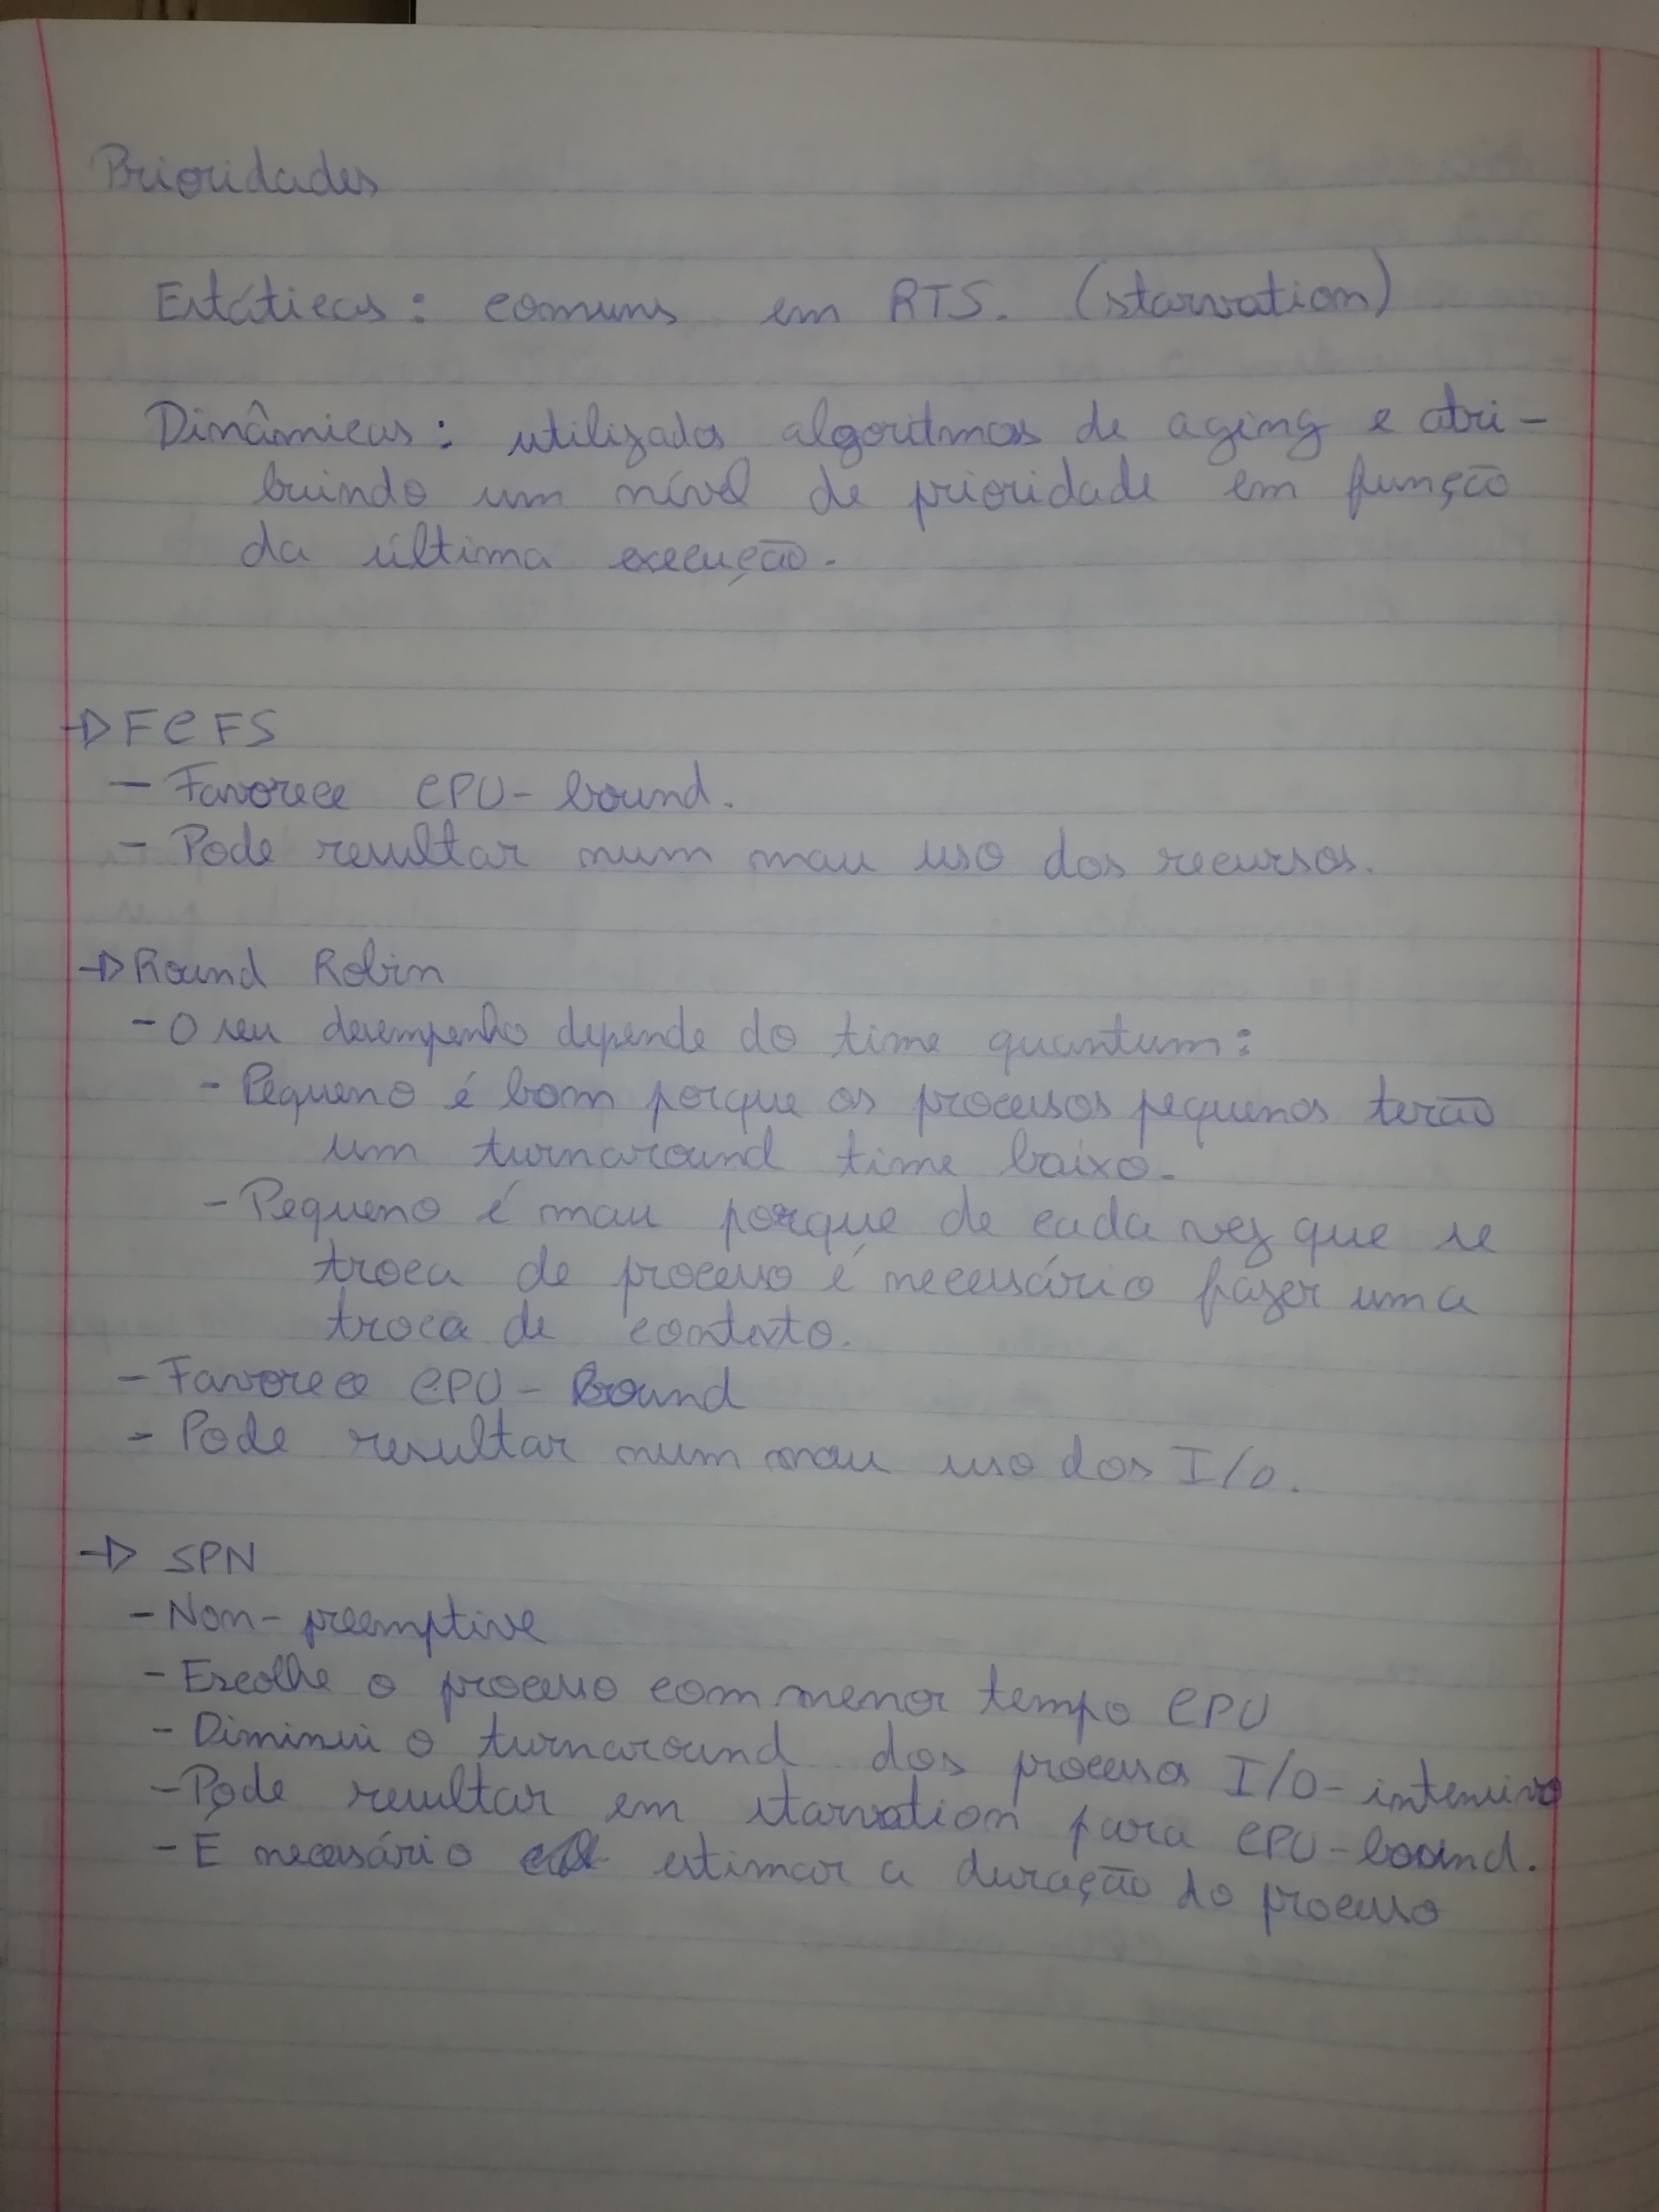 Prioridades
Estáticas: comuns em RTS. (starvation)
Dinâmicas: utilizados algoritmos de aging e atri-
buindo um nível de prioridade em função
da última execução.
→ FCFS
- Favorece CPU-bound.
- Pode resultar num mau uso dos recursos.
→ Round Robin
- O seu desempenho depende do time quantum:
- Pequeno é bom porque os processos pequenos terão
um turnaround time baixo.
- Pequeno é mau porque de cada vez que se
troca de processo é necessário fazer uma
troca de contexto.
- Favorece CPU-Bound
- Pode resultar num mau uso dos I/O.
→ SPN
- Non-preemptive
- Escolhe o processo com menor tempo CPU
- Diminui o turnaround dos processos I/O-intensivo
- Pode resultar em starvation para CPU-bound.
- É necessário estimar a duração do processo